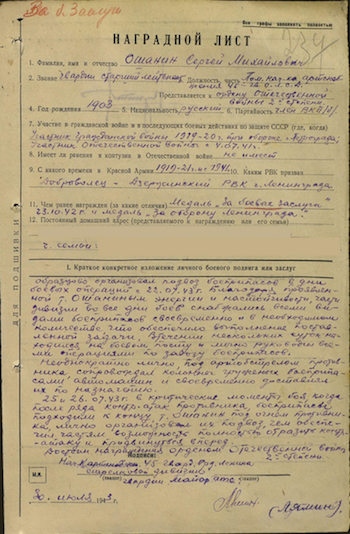 За б. Заслуги
Все графы заполнять полностью
234
НАГРАДНОЙ ЛИСТ
1. Фамилия, имя и отчество Ошанин Сергей Михайлович
2. Звание Гвардии старший лейтенант 3. Должность, часть Пом. нач-ка артснаб-
жения 45
Представляется к ордену Отечественной
войны 2й степени.
4. Год рождения 1903 5. Национальность русский 6. Партийность Член ВКП(б).
7. Участие в гражданской войне и в последующих боевых действиях по защите СССР (где, когда)
Участник Гражданской войны 1919-20 г.
Участник Отечественной войны с 4.07.41г.
8. Имеет ли ранения и контузии в Отечественной войне не имеет
9. С какого времени в Красной Армии 1919-21 и с 1941г. Каким РВК призван
Доброволец - Дзержинский РВК г. Ленинграда
11. Чем ранее награжден (за какие отличия) Медаль "За боевые заслуги"
23.10.42г и медаль "За оборону Ленинграда".
12. Постоянный домашний адрес (представляемого к награждению или его семьи)
ДЛЯ ПОДШИВКИ
1. Краткое конкретное изложение личного боевого подвига или заслуг
образцово организовал подвоз боеприпасов в дни
боевых операций с 22.07.43г. Благодаря проявлен-
ной т. Ошаниным энергии и настойчивости, части
дивизии во все дни боев снабжались всеми ви-
дами боеприпасов своевременно и в необходимом
количестве, что обеспечило выполнение постав-
ленной задачи. Несколько суток на-
ходился на боевом посту и лично руководил все-
ми операциями по завозу боеприпасов.
Неоднократно лично под артобстрелом против-
ника, сопровождал колонны груженых боеприпа-
сами автомашин и своевременно доставлял
их по назначению.
25 и 26.07.43г. в критические моменты боя, когда
после ряда контратак противника, боеприпасы
подходили к концу, т. Ошанин под огнем противни-
ка, лично организовал их подвоз, чем обеспе-
чил частям возможность отразить контр-
атаку и продвинуться вперед.
Достоин награждения орденом Отечественной войны
2й степени.
Подпись
45 Гвард. Кр. Ленина
стрелковой дивизии
М.П.
гвардии Майор
(звание)
30 июля 1943г.
(Лямин)